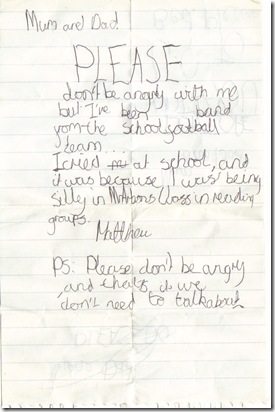 Mum and Dad.
PLEASE
don't be angry with me
but I've been band
from the school football
team...
I cried at school, and
it was because I was being
silly in Class in reading
groups.
Matthew
PS: Please don't be angry
and we
don't need to talk about